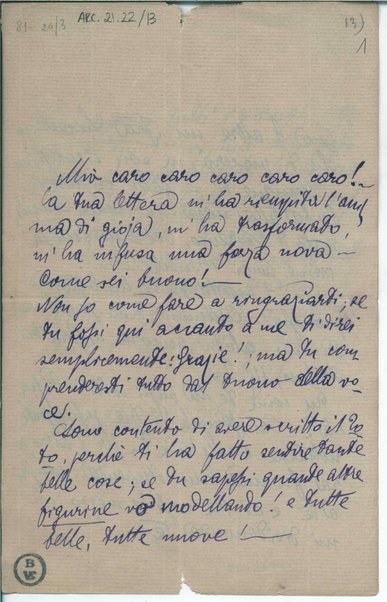 81- 20/3 ARC. 21. 22/13 13)
1
Mio caro caro caro caro caro!—
La tua lettera m'ha riempita l'ani
ma di gioja, m'ha trasformato,
m'ha infusa una forza nova —
Come sei buono! —
Non so come fare a ringraziarti; se
tu fossi qui accanto a me ti direi
semplicemente: Grazie!; ma tu com
prenderesti tutto dal tuono della vo-
ce.
Sono contento di avere scritto il
to, perchè ti ha fatto sentire tante
belle cose; se tu sapessi quante altre
figurine vo modellando! e tutte
belle, tutte nuove! —
B
VE